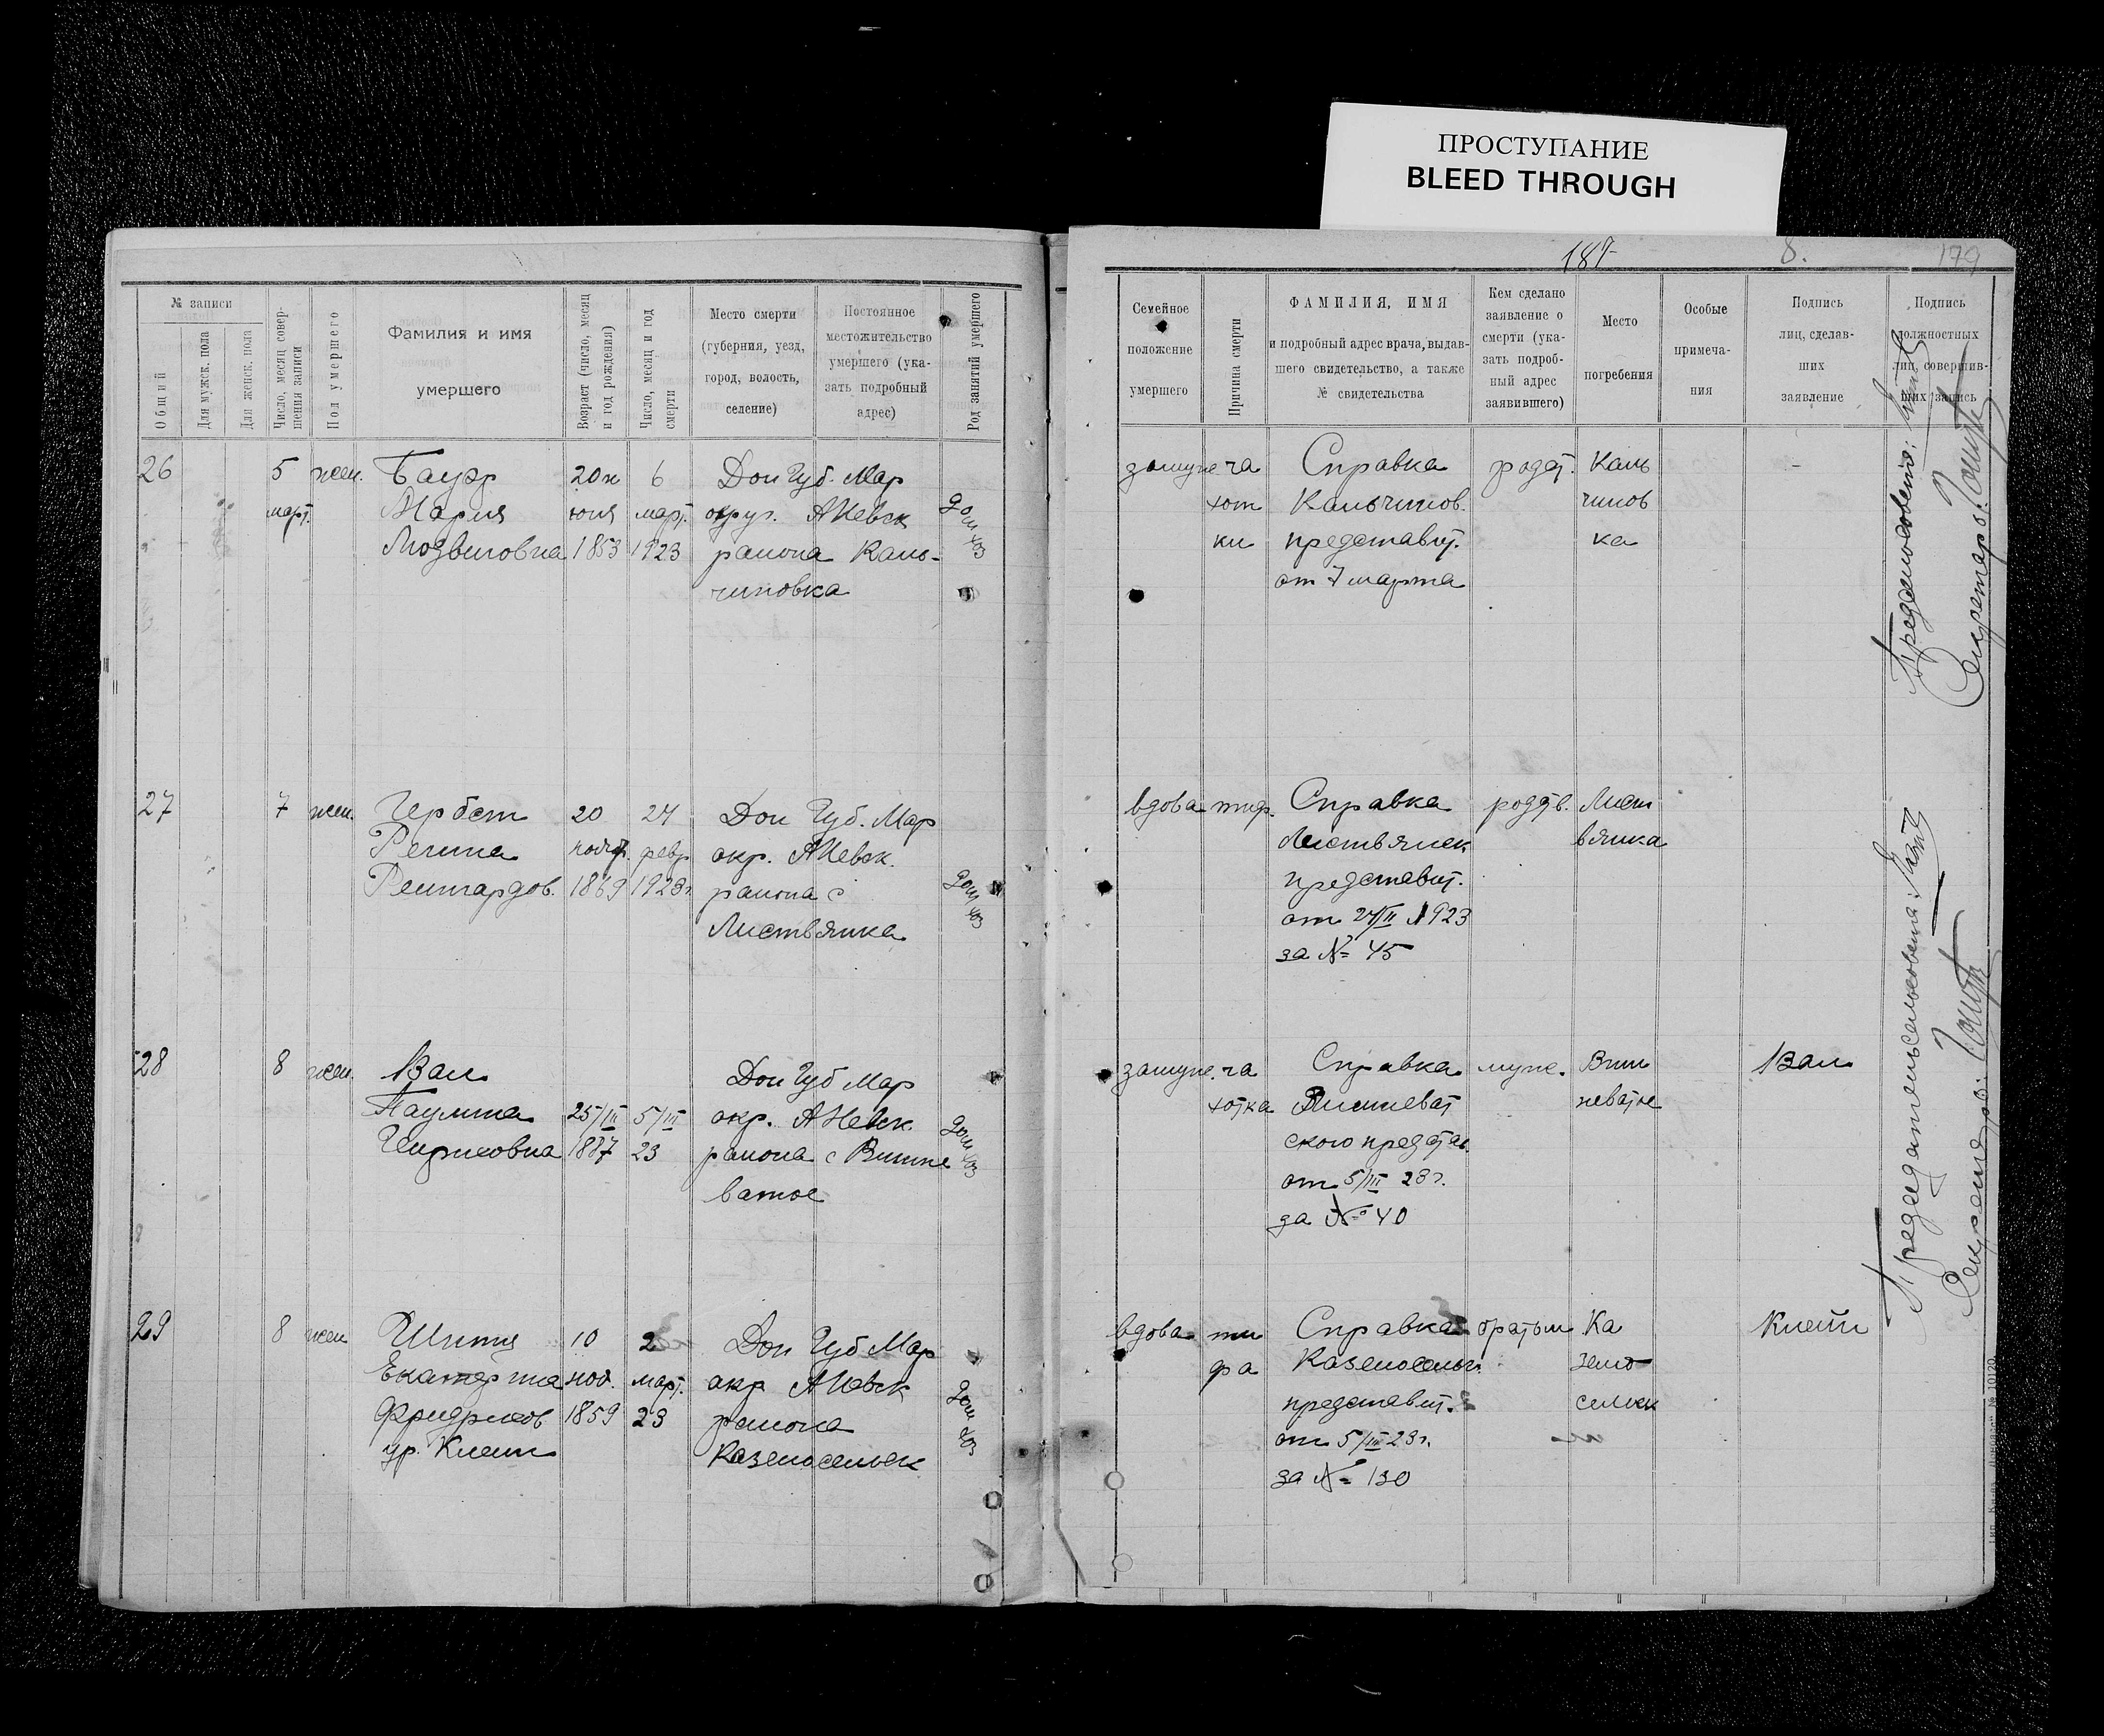 ПРОСТУПАНИЕ
BLEED THROUGH
187
8.
179
№ записи
Общий
Для мужск. пола
Для женск. пола
Число, месяц совер-
шения записи
Пол умершего
Фамилия и имя
умершего
Возраст (число, месяц
и год рождения)
Число, месяц и год
смерти
Место смерти
(губерния, уезд,
город, волость,
селение)
Постоянное
местожительство
умершего (ука-
зать подробный
адрес)
Род занятий умершего
Семейное
положение
умершего
Причина смерти
ФАМИЛИЯ, ИМЯ
и подробный адрес врача, выдав-
шего свидетельство, а также
№ свидетельства
Кем сделано
заявление о
смерти (ука-
зать подроб-
ный адрес
заявившего)
Место
погребения
Особые
примеча-
ния
Подпись
лиц, сделав-
ших
заявление
Подпись
должностных
лиц, совершив-
ших запись
26
5
март.
жен.
Бауэр
Мария
Людвиговна
20 н
юня
1853
6
март.
1923
Дон Губ. Мар
округ. АНевск
района Каль-
чиновка
дом хоз
замуж
ча
хот
ки
Справка
Кальчинов.
представит.
от 7 марта
родст.
Каль
чинов
ка
27
7
жен.
Гербст
Регина
Рейнгардов.
20
нояб.
1869
24
февр
1923 г.
Дон Губ. Мар
окр. АНевск.
района с
Листвянка
дом хоз
вдова
тиф.
Справка
Листвянск
представит.
от 24/II 1923
за № 45
родств.
Лист
вянка
28
8
жен.
Вал
Паулина
Генриховна
25/III
1887
5/III
23
Дон Губ Мар
окр. АНевск.
района с Вишне
ватое
дом хоз
замуж.
ча
хотка
Справка
Вишневат
ского предста
от 5/III 23 г.
за № 40
муж.
Виш
неватое
Вал
29
8
жен
Шитц
Екатерина
Фридрихов
ур. Клейн
10
ноя.
1859
2
март.
23
Дон Губ Мар
окр АНевск
района
Казеносельск
дом хоз
вдова
ти
фа
Справка
Казеносельск.
представит.
от 5/III 23 г.
за № 130
братом
Ка
зено
сельск
Клейн
Председатель сельсовета:
Секретарь: